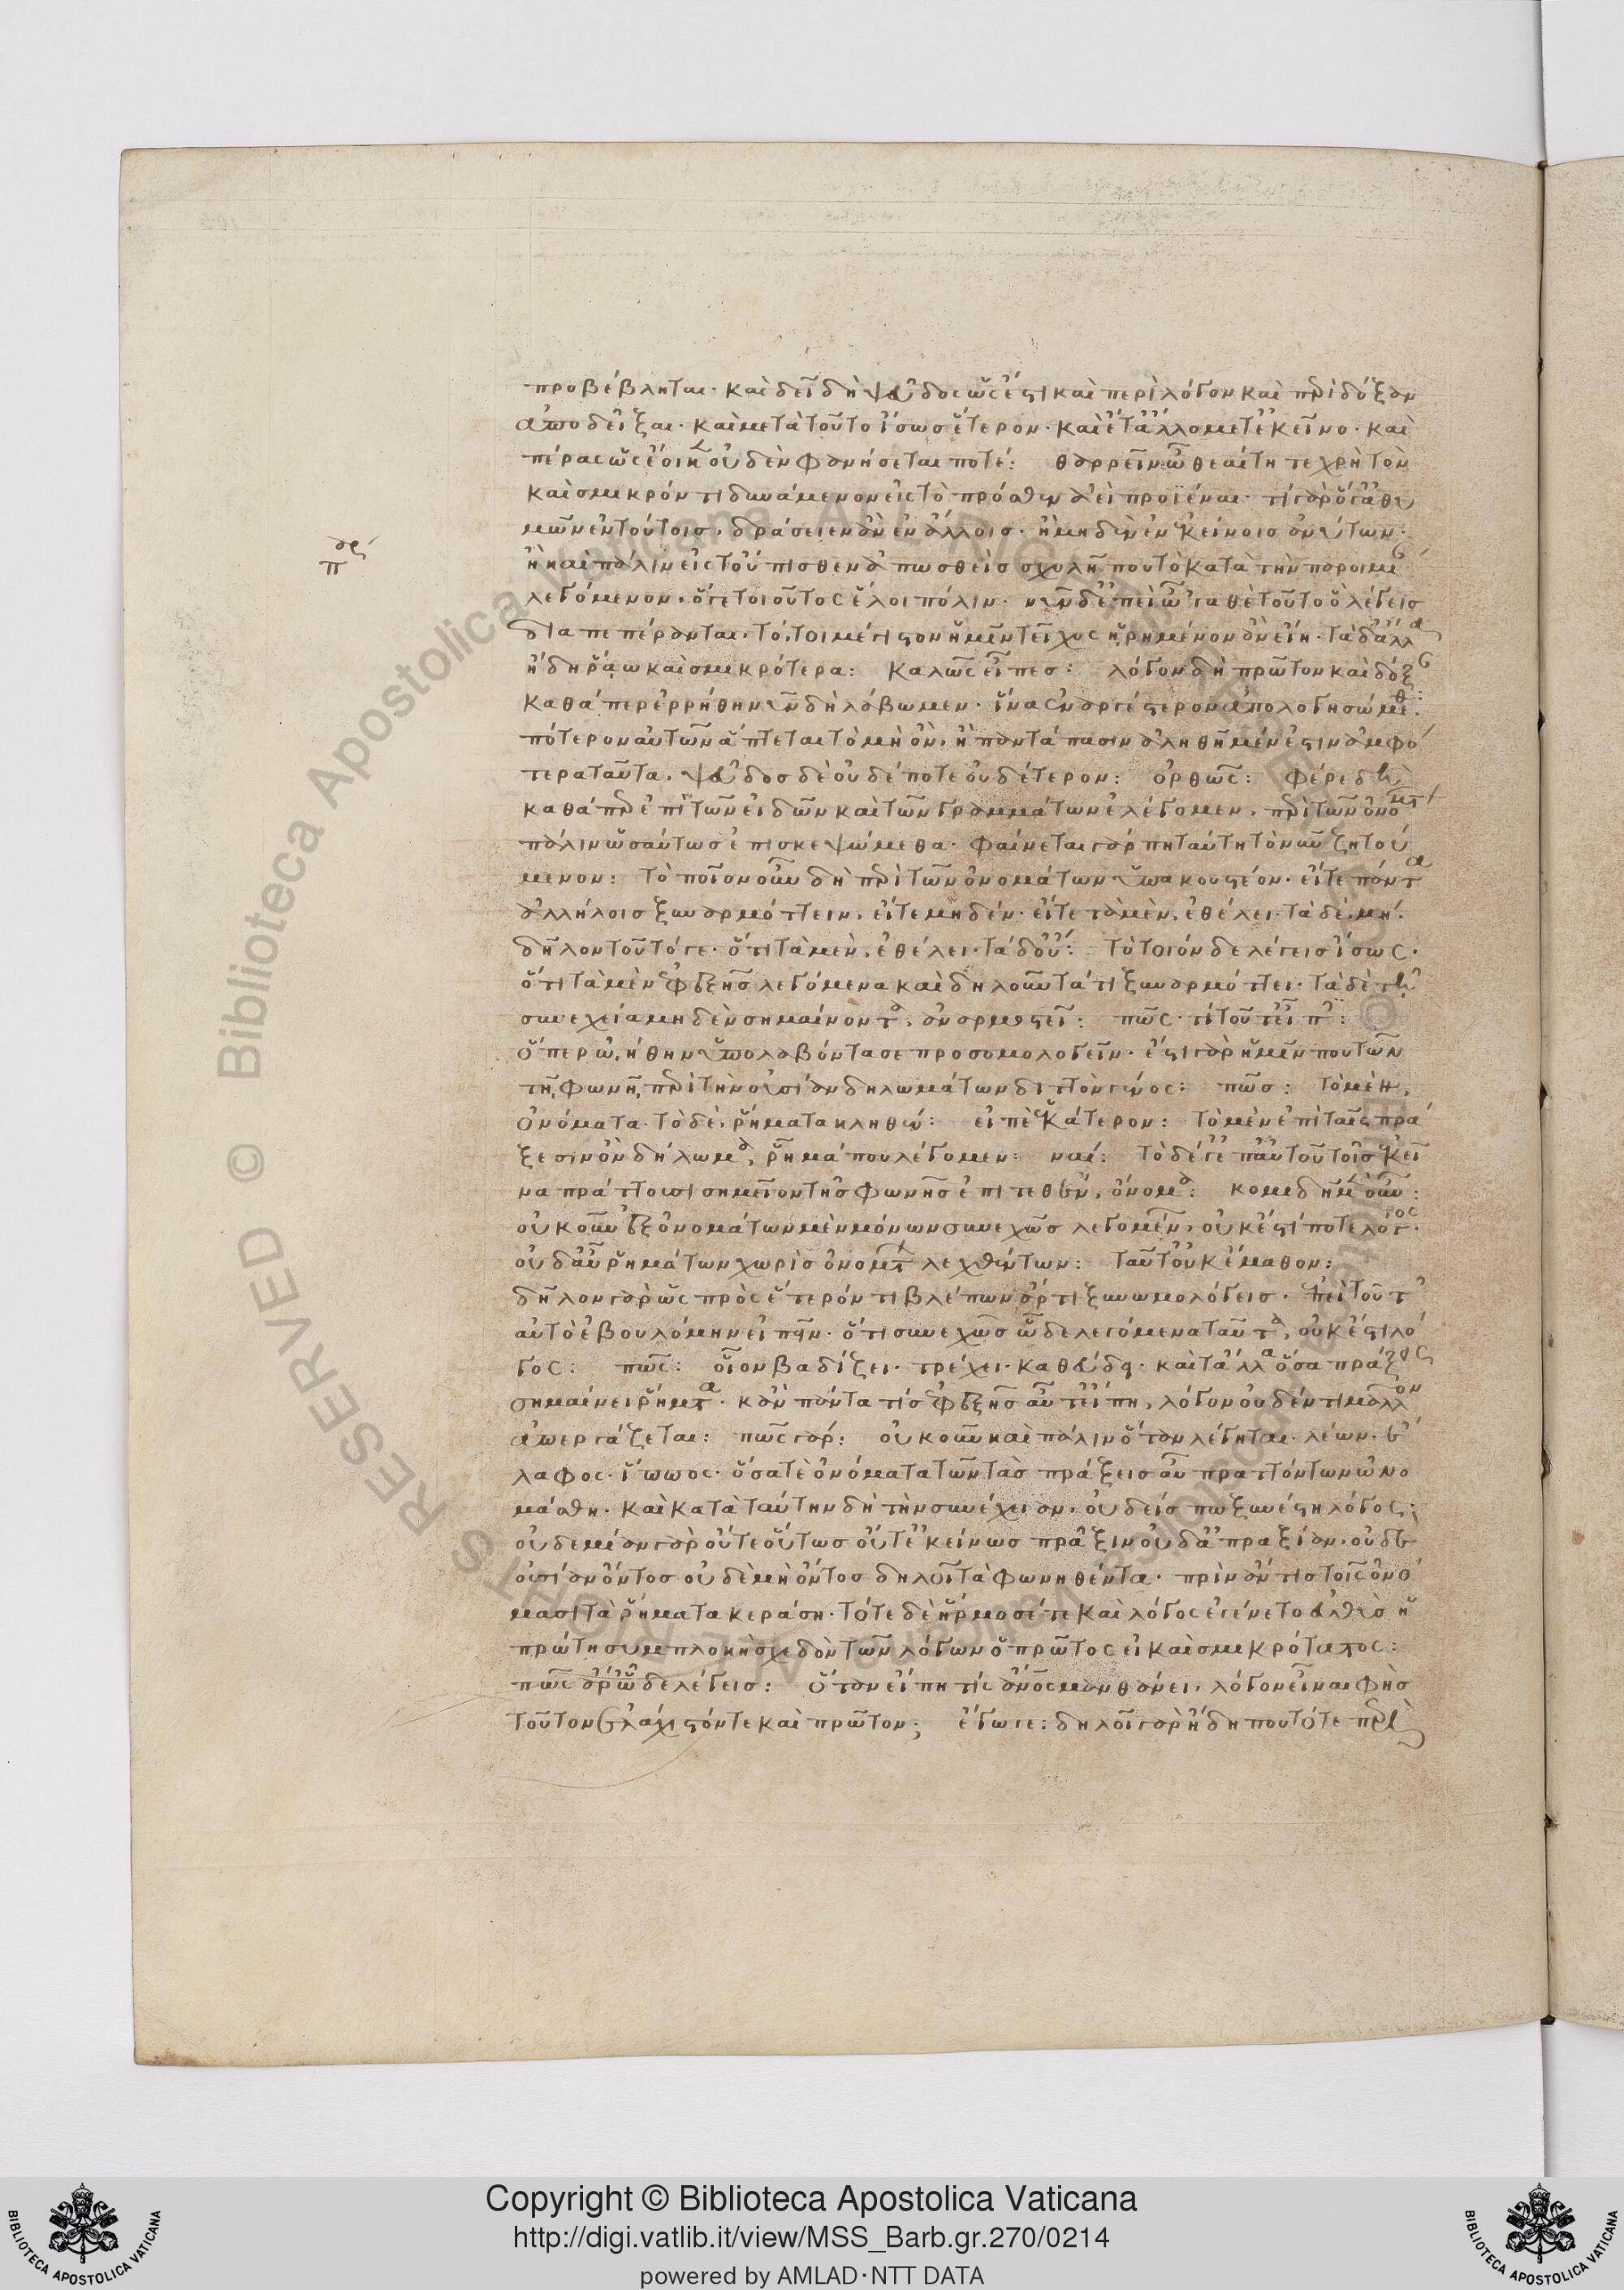 προβέβληται· καὶ δεῖ δὴ ψεῦδος ὡς ἔστι καὶ περὶ λόγον καὶ περὶ δόξαν
ἀποδεῖξαι· καὶ μετὰ τοῦτο ἴσως ἕτερον· καὶ ἔτ' ἄλλο μετ' ἐκεῖνο· καὶ
πέρας ὡς ἔοικεν οὐδὲν φανήσεταί ποτέ: θαρρεῖν ὦ θεαίτητε χρὴ τὸν
καὶ σμικρόν τι δυνάμενον εἰς τὸ πρόσθεν ἀεὶ προϊέναι· τί γὰρ ὅ γ' ἀθυ
μῶν ἐν τούτοις, δράσειεν ἂν ἐν ἄλλοις· ἢ μηδὲν ἐν ἐκείνοις ἀνύτων·
ἢ καὶ πάλιν εἰς τοὔπισθεν ἀπωσθεὶς σχολῇ που τὸ κατὰ τὴν παροιμ
λεγόμενον, ὅ γε τοιοῦτος ἕλοι πόλιν· νῦν δ' ἐπεὶ ὦ 'γαθὲ τοῦτο ὃ λέγεις
διαπεπέρανται, τό, τοι μέγιστον ἡμῖν τεῖχος ᾑρημένον ἂν εἴη· τὰ δ' ἄλλα
ἤδη ῥᾴω καὶ σμικρότερα: καλῶς εἶπες: λόγον δὴ πρῶτον καὶ δόξ
καθάπερ ἐρρήθη νῦν δὴ λάβωμεν· ἵνα ἐναργέστερον ἀπολογησώμεθ:
πότερον αὐτῶν ἅπτεται τὸ μὴ ὄν, ἢ παντάπασιν ἀληθῆ μέν ἐστιν ἀμφό
τερα ταῦτα, ψεῦδος δὲ οὐδέποτε οὐδέτερον: ὀρθῶς: φέρε δὴ
καθάπερ ἐπὶ τῶν εἰδῶν καὶ τῶν γραμμάτων ἐλέγομεν, περὶ τῶν ὀνομτ
πάλιν ὡσαύτως ἐπισκεψώμεθα· φαίνεται γάρ πῃ ταύτῃ τὸ νῦν ζητού
μενον: τὸ ποῖον οὖν δὴ περὶ τῶν ὀνομάτων ὑπακουστέον· εἴτε πάντα
ἀλλήλοις ξυναρμόττειν, εἴτε μηδέν· εἴτε τὰ μὲν, ἐθέλει· τὰ δὲ, μή.
δῆλον τοῦτό γε· ὅτι τὰ μὲν, ἐθέλει· τὰ δ' οὔ: τὸ τοιόνδε λέγεις ἴσως·
ὅτι τὰ μὲν ἐφεξῆς λεγόμενα καὶ δηλοῦντά τι ξυναρμόττει· τὰ δὲ τῇ
συνεχείᾳ μηδὲν σημαίνοντα, ἀναρμοστεῖ: πῶς· τί τοῦτ' εἶπ:
ὅπερ ᾠήθην ὑπολαβόντα σε προσομολογεῖν· ἔστι γὰρ ἡμῖν που τῶν
τῇ φωνῇ, περὶ τὴν οὐσίαν δηλωμάτων διττὸν γένος: πῶς: τὸ μὲν,
ὀνόματα· τὸ δὲ, ῥήματα κληθέν: εἰπὲ ἑκάτερον: τὸ μὲν ἐπὶ ταῖς πρά
ξεσιν ὂν δήλωμα, ῥῆμά που λέγομεν: ναί: τὸ δέ γ' ἐπ' αὐτοῦ τοῖς ἐκεῖ
να πράττουσι σημεῖον τῆς φωνῆς ἐπιτεθέν, ὄνομα: κομιδῇ μὲν οὖν:
οὐκοῦν ἐξ ὀνομάτων μὲν μόνων συνεχῶς λεγομέν, οὐκ ἔστι ποτε λόγος·
οὐδ' αὖ ῥημάτων χωρὶς ὀνομτ λεχθέντων: ταῦτ' οὐκ ἔμαθον:
δῆλον γὰρ ὡς πρὸς ἕτερόν τι βλέπων ἄρτι ξυνωμολόγεις· ἐπεὶ τοῦτ'
αὐτὸ ἐβουλόμην εἰπεῖν· ὅτι συνεχῶς ὧδε λεγόμενα ταῦτα, οὐκ ἔστι λό
γος: πῶς: οἷον βαδίζει· τρέχει· καθεύδει· καὶ τἄλλα ὅσα πράξεις
σημαίνει ῥήματα· κἂν πάντα τις ἐφεξῆς αὔτ' εἴπῃ, λόγον οὐδέν τι μᾶλλον
ἀπεργάζεται: πῶς γάρ: οὐκοῦν καὶ πάλιν ὅταν λέγηται· λέων· ἔ
λαφος· ἵππος· ὅσα τὲ ὀνόματα τῶν τὰς πράξεις αὖ πραττόντων ὠνο
μάσθη· καὶ κατὰ ταύτην δὴ τὴν συνέχειαν, οὐδείς πω ξυνέστη λόγος;
οὐδεμίαν γὰρ οὔτε οὕτως οὔτ' ἐκείνως πρᾶξιν οὐδ' ἀπραξίαν· οὐδὲ
οὐσίαν ὄντος οὐδὲ μὴ ὄντος δηλοῖ τὰ φωνηθέντα· πρὶν ἄν τις τοῖς ὀνό
μασι τὰ ῥήματα κεράσῃ· τότε δὲ ἥρμοσέ τε καὶ λόγος ἐγένετο εὐθὺς ἡ
πρώτη συμπλοκὴ σχεδὸν τῶν λόγων ὁ πρῶτος εἰ καὶ σμικρότατος:
πῶς ἄρ' ὧδε λέγεις: ὅταν εἴπῃ τίς ἄνος μανθάνει, λόγον εἶναι φὴς
τοῦτον ἐλάχιστόν τε καὶ πρῶτον; ἔγωγε: δηλοῖ γὰρ ἤδη που τότε περὶ
Copyright © Biblioteca Apostolica Vaticana
http://digi.vatlib.it/view/MSS_Barb.gr.270/0214
powered by AMLAD·NTT DATA
BIBLIOTECA APOSTOLICA VATICANA
BIBLIOTECA APOSTOLICA VATICANA